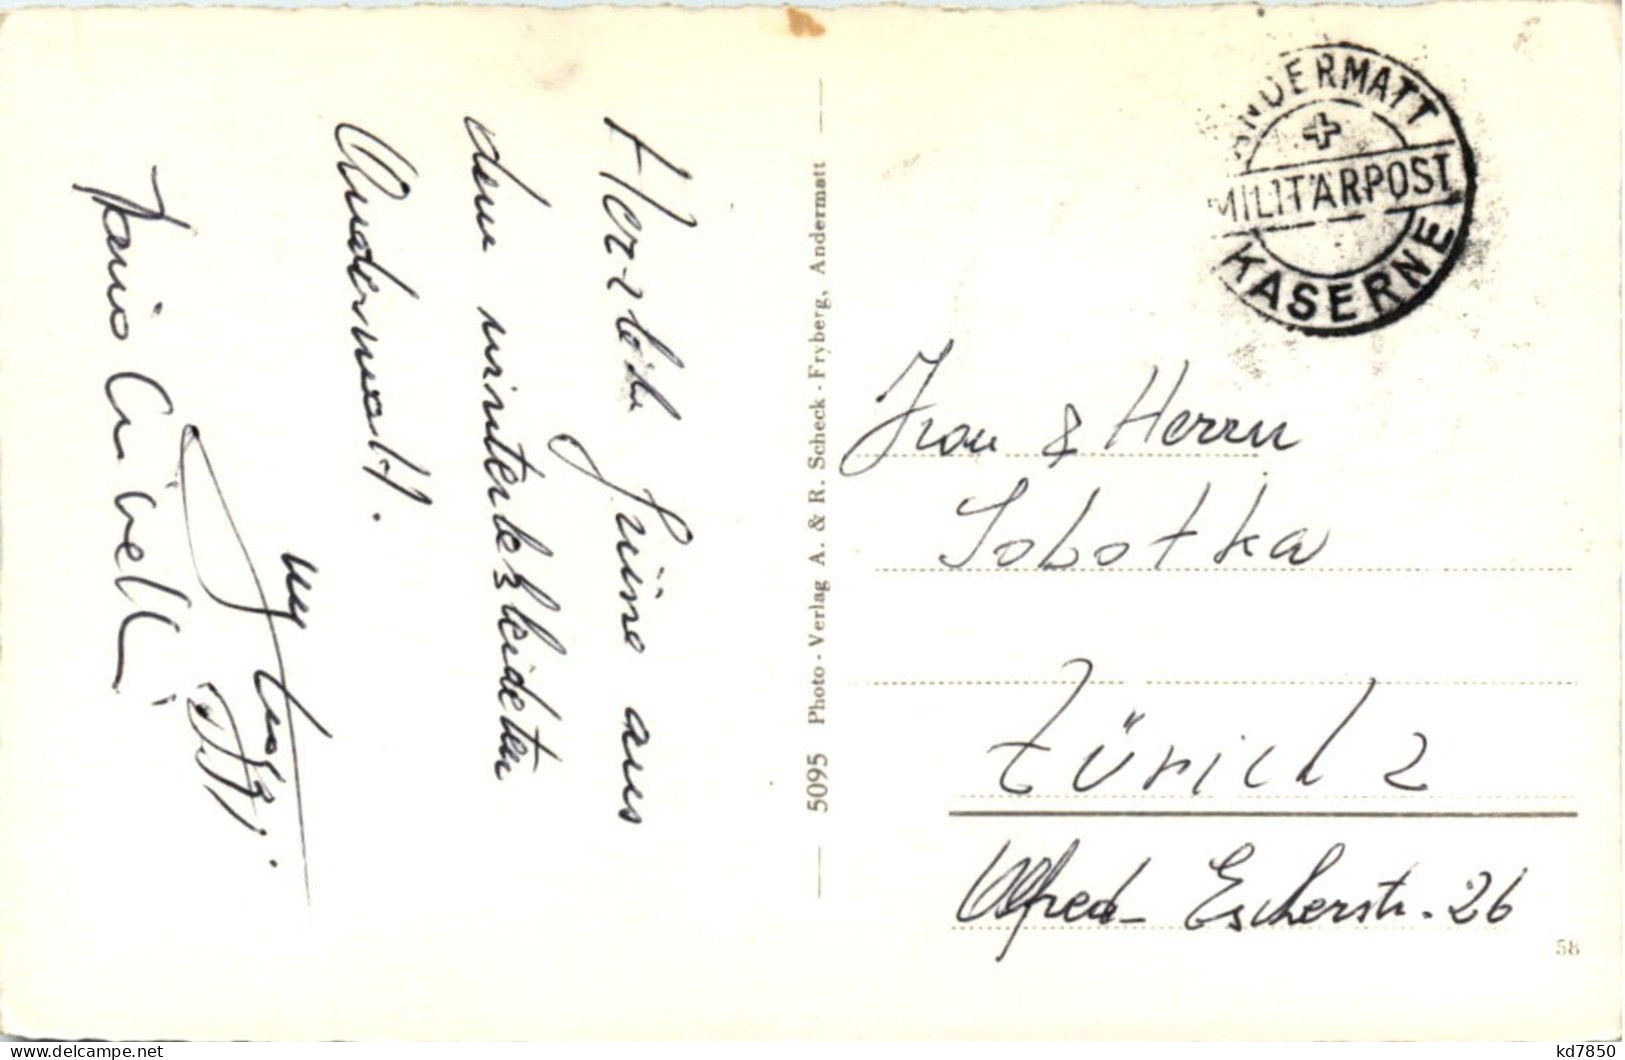 Herzlich Grüsse aus
dem winterbekleideten
Andermatt.
ANDERMATT
MILITÄRPOST
KASERNE
5095 Photo-Verlag A. & R. Scheck-Fryberg, Andermatt
Frau & Herrn
Sobotka
Zürich 2
Alfred-Escherstr. 26
58
kd7850